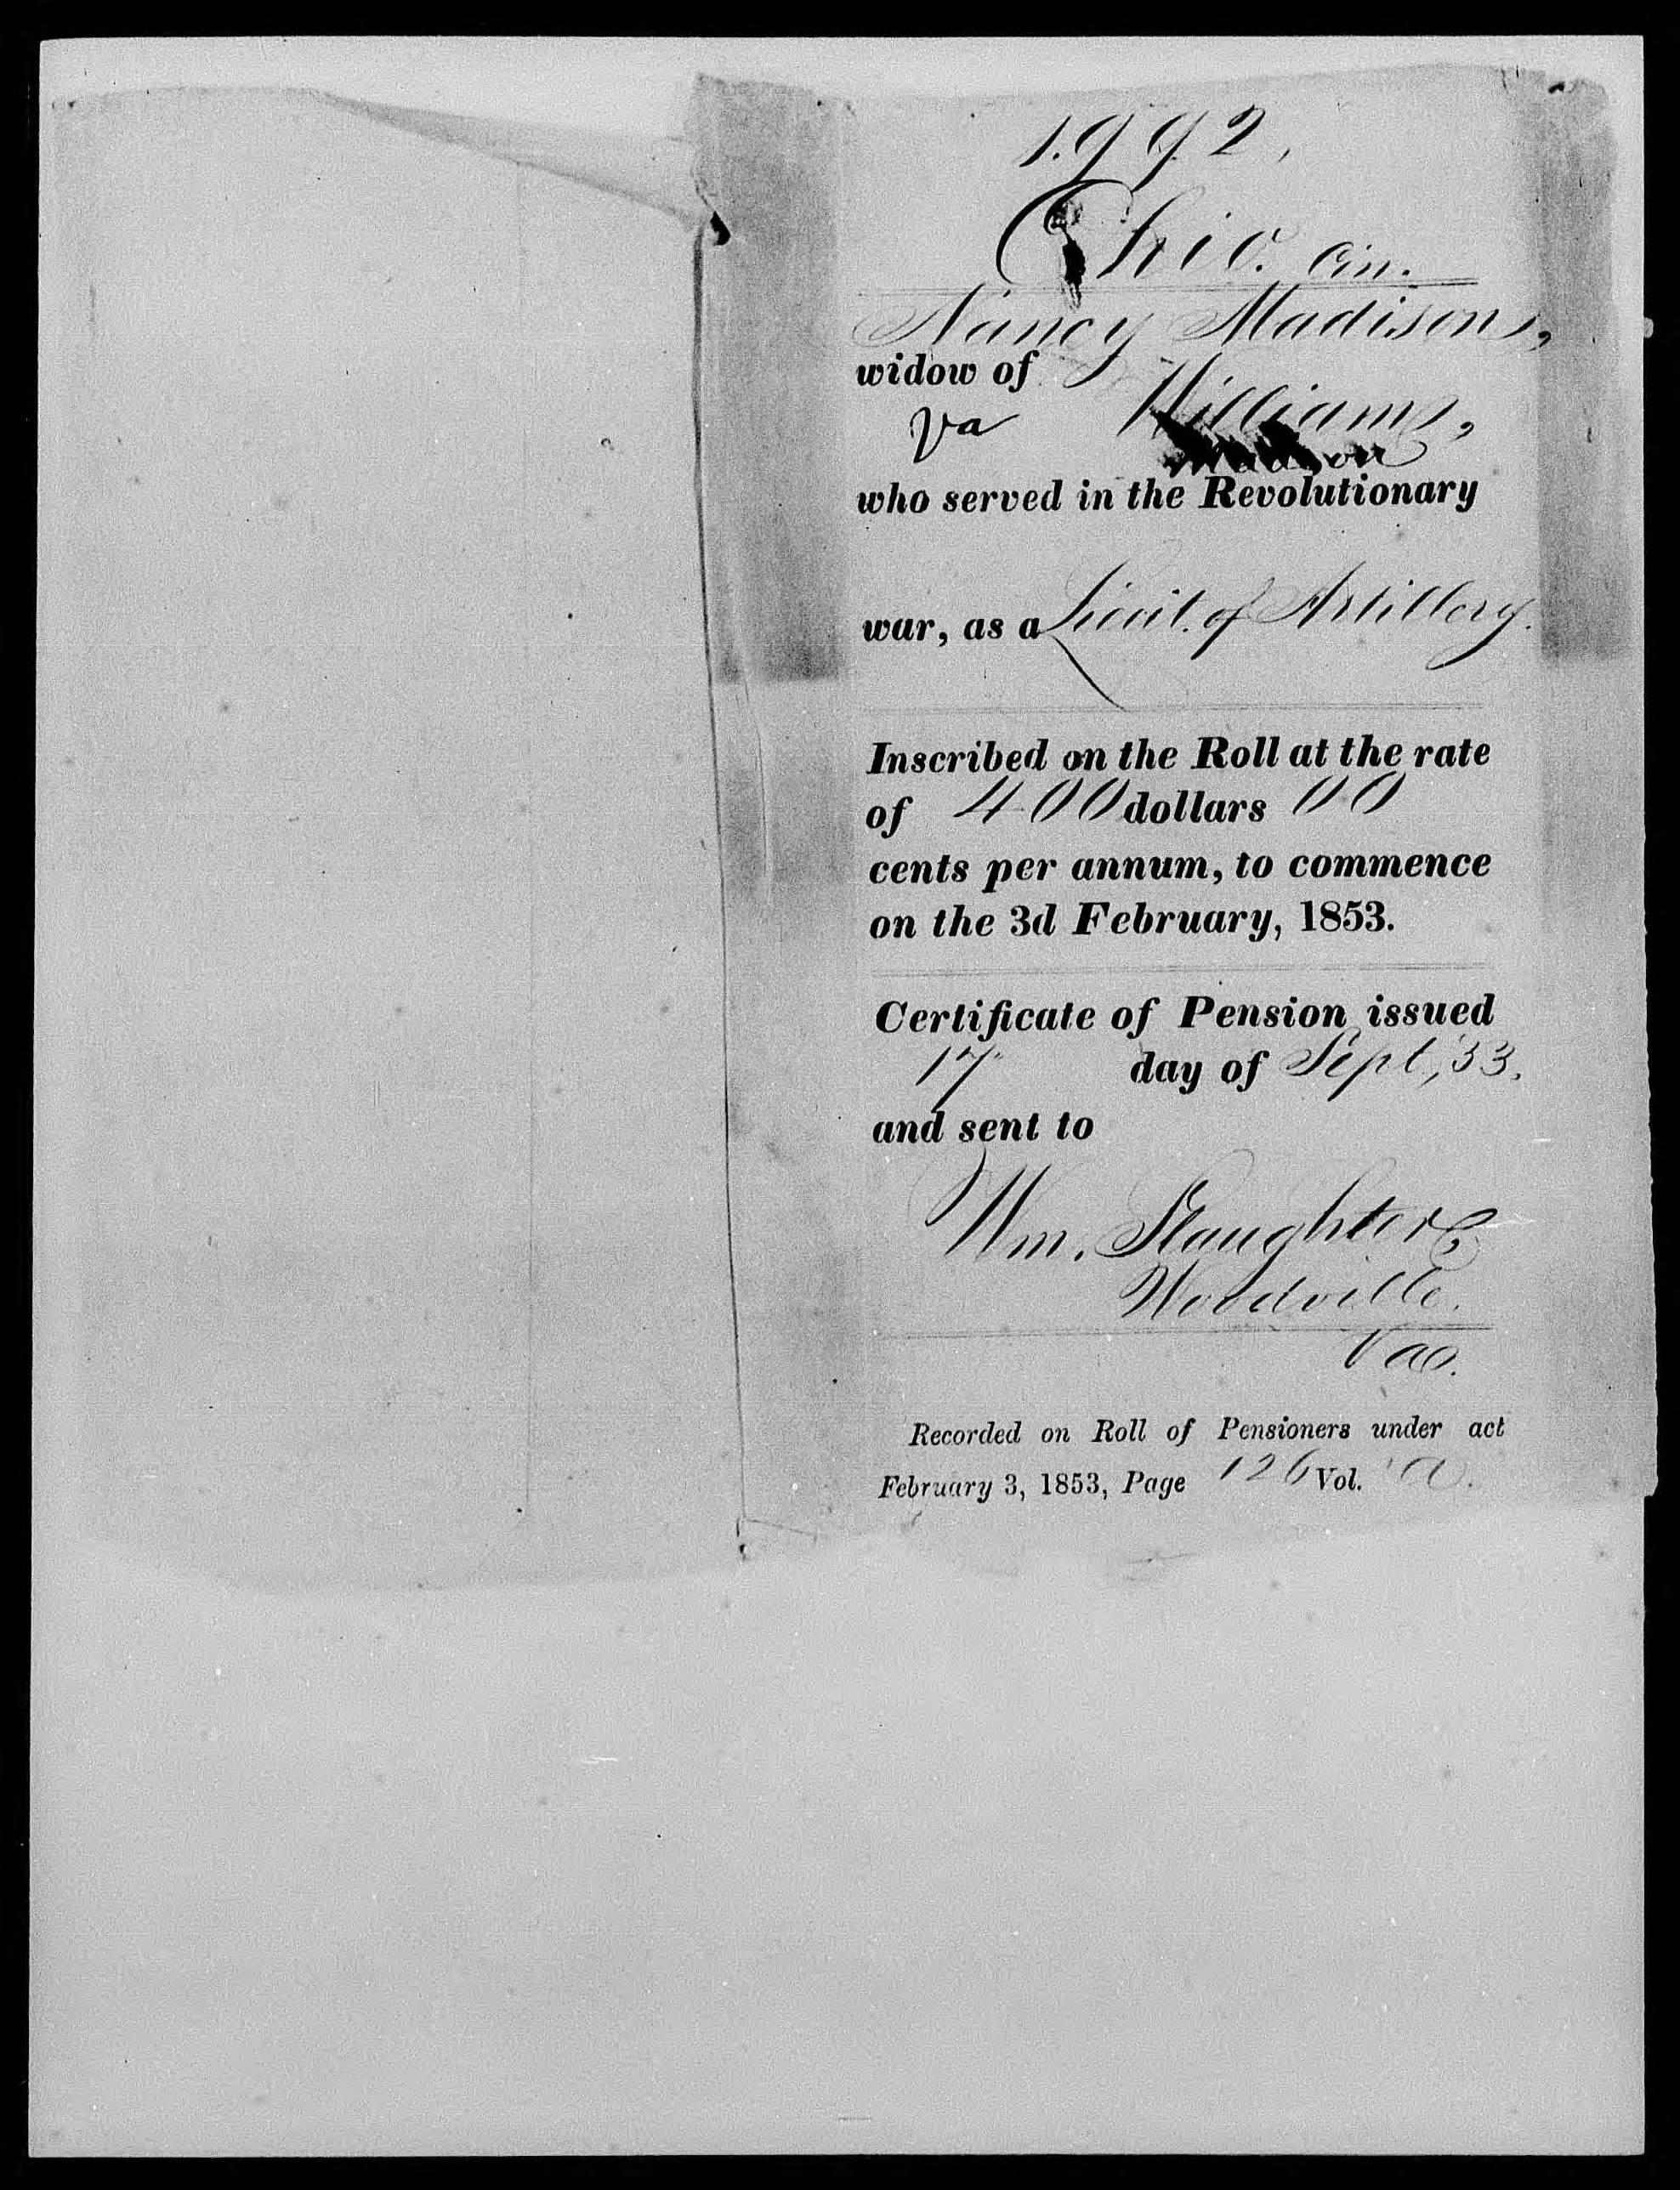 1.992,
Ohio. Cin.
Nancy Madison,
widow of
Va William,
Madison
who served in the Revolutionary
war, as a Lieut. of Artillery.
Inscribed on the Roll at the rate
of 400 dollars 00
cents per annum, to commence
on the 3d February, 1853.
Certificate of Pension issued
17 day of Sept, 53.
and sent to
Wm. Slaughter,
Woodville.
Va.
Recorded on Roll of Pensioners under act
February 3, 1853, Page 126 Vol. a.